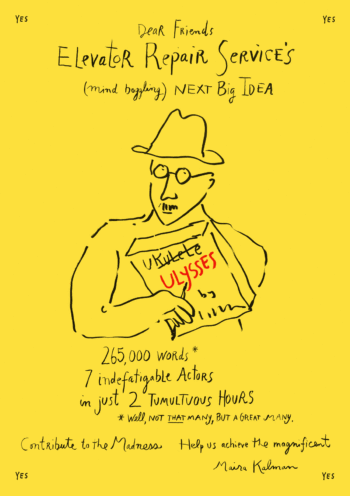 YES YES
Dear Friends
Elevator Repair Service's
(mind boggling) NEXT Big IDEA
UKULELE
ULYSSES
by
265,000 WORDS*
7 indefatigable Actors
in just 2 TUMULTUOUS HOURS
* Well, NOT THAT MANY, BUT A GREAT MANY.
Contribute to the Madness. Help us achieve the magnificent
Maira Kalman
YES YES